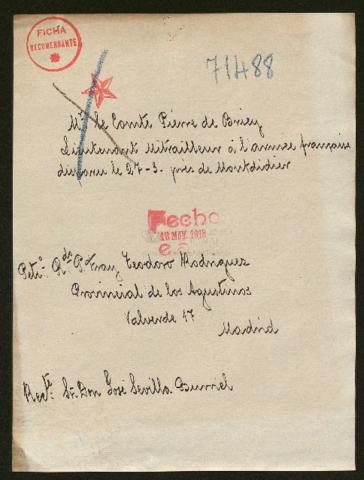 FICHA
RECOMENDANTE
71488
Mr. le Comte Pierre de Briey
Lieutenant Mitrailleur à l'armée française
disparu le 27-3. près de Montdidier
Fecha
18 MAY. 1918
Petº. Rdo. P. Fray Teodoro Rodriguez
Provincial de los Agustinos
Valverde 17
Madrid
Recte. Sr. Don José Sevilla Burriel